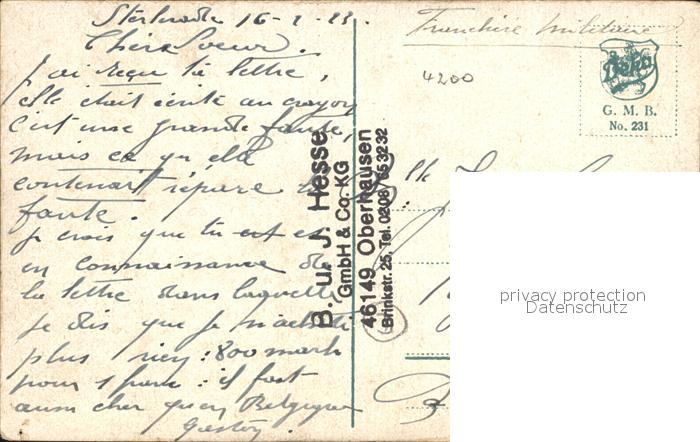 Sterkrade 16-2-23.
Chère Soeur.
J'ai reçu ta lettre,
elle était écrite au crayon
c'est une grande faute,
mais ce qu'elle
contenait répare la
faute.
Je crois que tu est
en connaissance de
la lettre dans laquelle
je dis que je n'achète
plus rien : 800 mark
pour 1 franc : il fait
aussi cher qu'en Belgique
Gaston
Franchise militaire
4200
G. M. B.
No. 231
B. u. J. Hesse
GmbH & Co. KG
46149 Oberhausen
Brinkstr. 25, Tel. 0208 / 65 32 32
privacy protection
Datenschutz